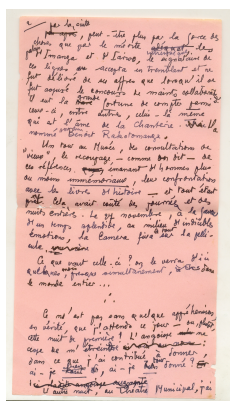 par la suite
peut-être plus par la force des
choses que par le mérite
Imanga et le signataire de
ces lignes accepta en tremblant et ne
fut délivré de ses affres que lorsqu'il se
fut assuré le concours de maints collaborateurs.
Il eut la fortune de compter parmi
ceux-ci, entre autres, celui-là même
qui est l'âme de la Chanterie :
nommé Benoît Rakotomanga.
Un tour au Musée, des consultations de
vieux, le recoupage - comme on dit - de
ces références émanant d'hommes plus
ou moins immémoriaux, leur confrontation
avec les livres d'histoire - et tout était
cela avait coûté des journées et des
nuits entières. Le 27 novembre, à la faveur
d'un temps splendide, au milieu d'indicibles
émotions, la Caméra fixa sur la pelli-
cule
Que vaut celle-ci ? On le verra d'ici
quelques mois, presque simultanément, dans
le monde entier ...
Ce n'est pas sans quelque appréhension
en vérité, que j'attends ce jour - ou plutôt
cette nuit de première ! L'angoisse
celle de m'étreindre
dans ce que j'ai contribué à donner,
ai-je ai-je donné ?
L'autre nuit, au Théâtre Municipal, j'ai